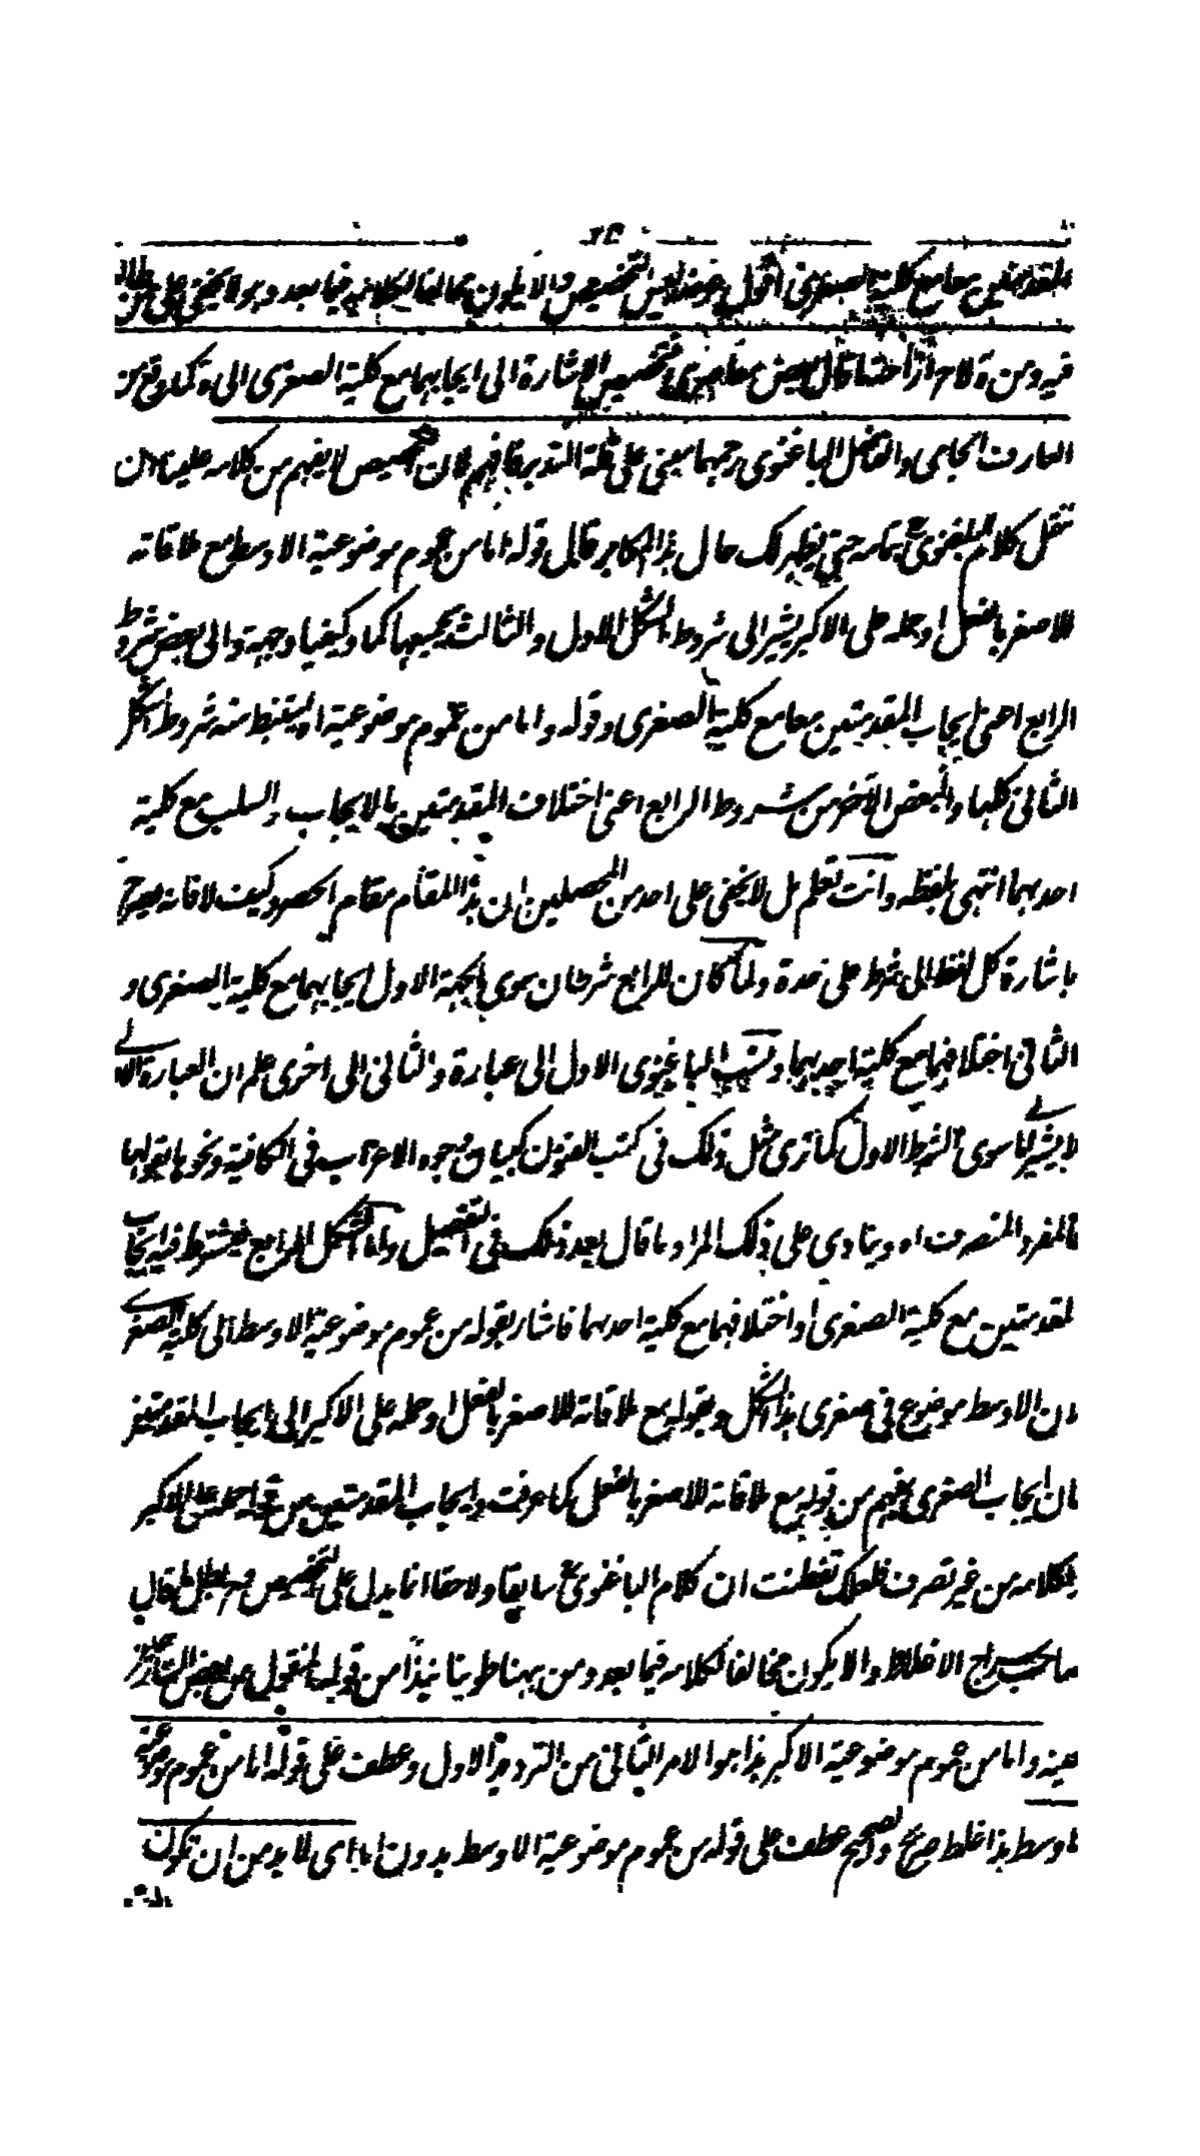 المقدمتين معا مع كلية الصغرى اقول غرضه ليس التخصيص والا يكون مخالفا لكلامه فيما بعد وهو لا يخفى على من
فيه ومن ثم قال بعض معاصرى تخصيص الاشارة الى ايجابهما مع كلية الصغرى الى ذلك وقع من
العارف الجامى والفاضل الباغنوى رحمهما يبنى على قلة التدبر فافهم لان التخصيص لا يفهم من كلامه علينا ان
ننقل كلام الباغنوى بتمامه حتى يظهر لك حال هذا المكابر قال قوله اما من عموم موضوعية الاوسط مع ملاقاته
للاصغر بالفعل او حمله على الاكبر يشير الى شروط الشكل الاول والثالث بجميعها كما وكيفيا وجهة والى بعض شروط
الرابع اعنى ايجاب المقدمتين معا مع كلية الصغرى وقوله واما من عموم موضوعية اه يستنبط منه شروط الشكل
الثانى كلها والبعض الآخر من شروط الرابع اعنى اختلاف المقدمتين بالايجاب والسلب مع كلية
احدهما انتهى بلفظه وانت تعلم بل لا يخفى على احد من المحصلين ان هذا المقام مقام الحصر وكيف لا فانه يصرح
باشارة كل لفظ الى شرط على حدة ولما كان للرابع شرطان سوى الجهة الاول ايجابهما مع كلية الصغرى و
الثانى اختلافهما مع كلية احدهما ونسب الباغنوى الاول الى عبارة والثانى الى اخرى علم ان العبارة الاولى
لا يشير لما سوى الشرط الاول كما ترى مثل ذلك فى كتب الفنون كبيان وجوه الاعراب فى الكافية ونحوها بقولها
فالمفرد المنصرف اه وينادى على ذلك المراد ما قال بعد ذلك فى التفصيل واما الشكل الرابع فيشترط فيه ايجاب
لمقدمتين مع كلية الصغرى او اختلافهما مع كلية احدهما فاشار بقوله من عموم موضوعية الاوسط الى كلية الصغرى
ان الاوسط موضوع فى صغرى هذا الشكل وبقوله مع ملاقاته للاصغر بالفعل او حمله على الاكبر الى ايجاب المقدمتين
ان ايجاب الصغرى يفهم من قوله مع ملاقاته للاصغر بالفعل كما عرفت وايجاب المقدمتين من حمله على الاكبر
كلامه من غير تصرف فلعلك تفطنت ان كلام الباغنوى سابقا ولاحقا انما يدل على التخصيص قال
صاحب سراج الاغلاط والا يكون مخالفا لكلامه فيما بعد ومن ههنا طوينا نبذا من قوله المنقول عن بعض
عينه واما من عموم موضوعية الاكبر هذا هو الامر الثانى من الترديد الاول وعطف على قوله اما من عموم موضوعية
اوسط هذا غلط صريح والصحيح عطف على قوله من عموم موضوعية الاوسط بدون اما اى لابد من ان تكون